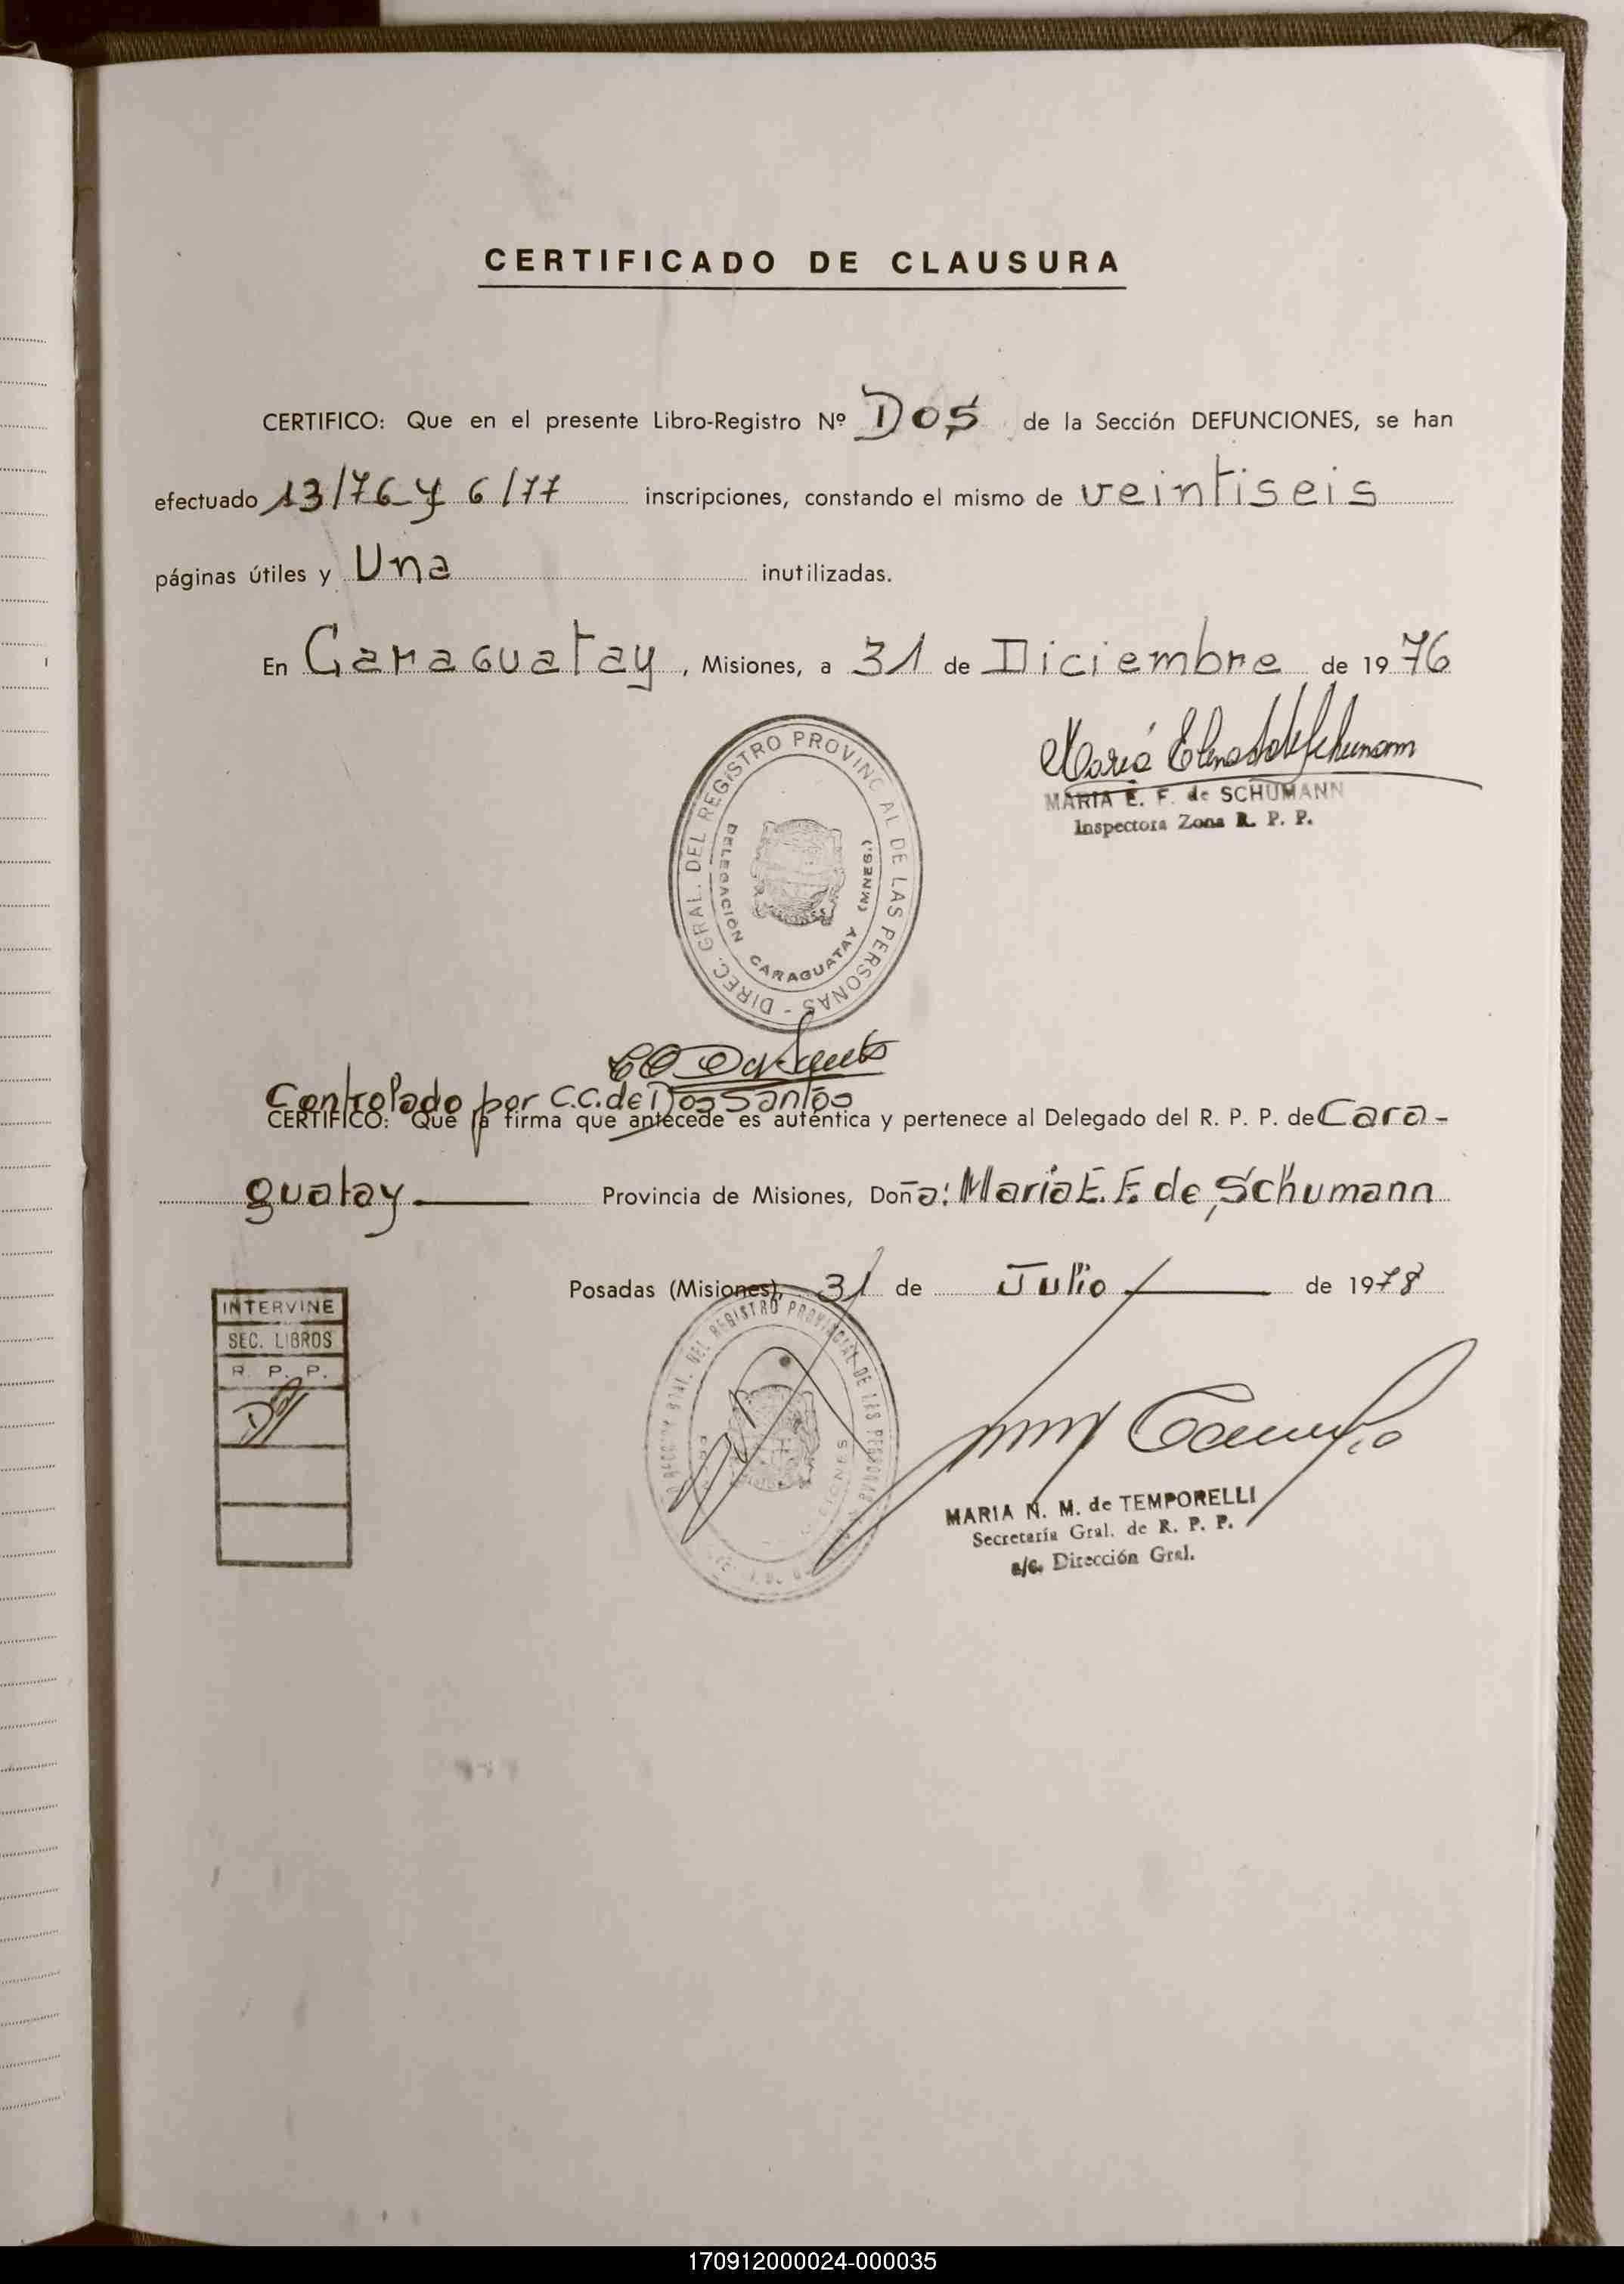 CERTIFICADO DE CLAUSURA
CERTIFICO: Que en el presente Libro-Registro Nº DOS de la Sección DEFUNCIONES, se han
efectuado 13/76 y 6/77 inscripciones, constando el mismo de veintiseis
páginas útiles y Una inutilizadas.
En Caraguatay, Misiones, a 31 de Diciembre de 1976
MARIA E. F. de SCHUMANN
Inspectora Zona R. P. P.
DIREC. GRAL. DEL REGISTRO PROVINCIAL DE LAS PERSONAS -
DELEGACION CARAGUATAY (MNES.)
Controlado por C.C. de Dos Santos
CERTIFICO: Que la firma que antecede es auténtica y pertenece al Delegado del R. P. P. de Cara-
guatay Provincia de Misiones, Doña: Maria E. F. de Schumann
Posadas (Misiones), 31 de Julio de 1978
INTERVINE
SEC. LIBROS
R. P. P.
DEL REGISTRO PROVINCIAL DE LAS PERSONAS
MARIA N. M. de TEMPORELLI
Secretaría Gral. de R. P. P.
a/c. Dirección Gral.
170912000024-000035